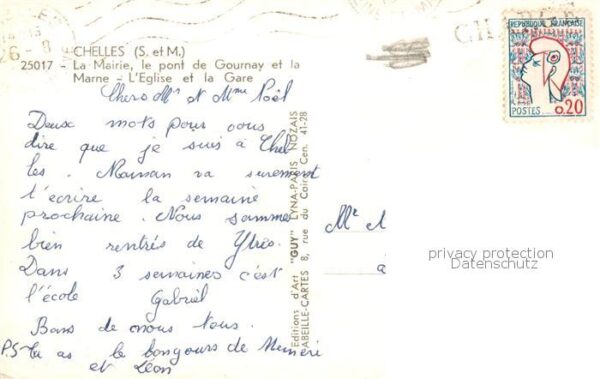 CHELLES (S. et M.)
25017 - La Mairie, le pont de Gournay et la
Marne - L'Eglise et la Gare
REPUBLIQUE FRANÇAISE
POSTES 0,20
Chers Mr et Mme Noël
Deux mots pour vous
dire que je suis à Chel
les. Maman va surement
t'écrire la semaine
prochaine. Nous somme
bien rentrés de Ytres.
Dans 3 semaines c'est
l'école Gabriel
Bons de nous tous.
P.S tu as le bongours de Memeri
et Léon
Editions d'Art "GUY" LYNA-PARIS
ABEILLE-CARTES 8, rue du Caire Cen. 41-28
Mr
a
privacy protection
Datenschutz